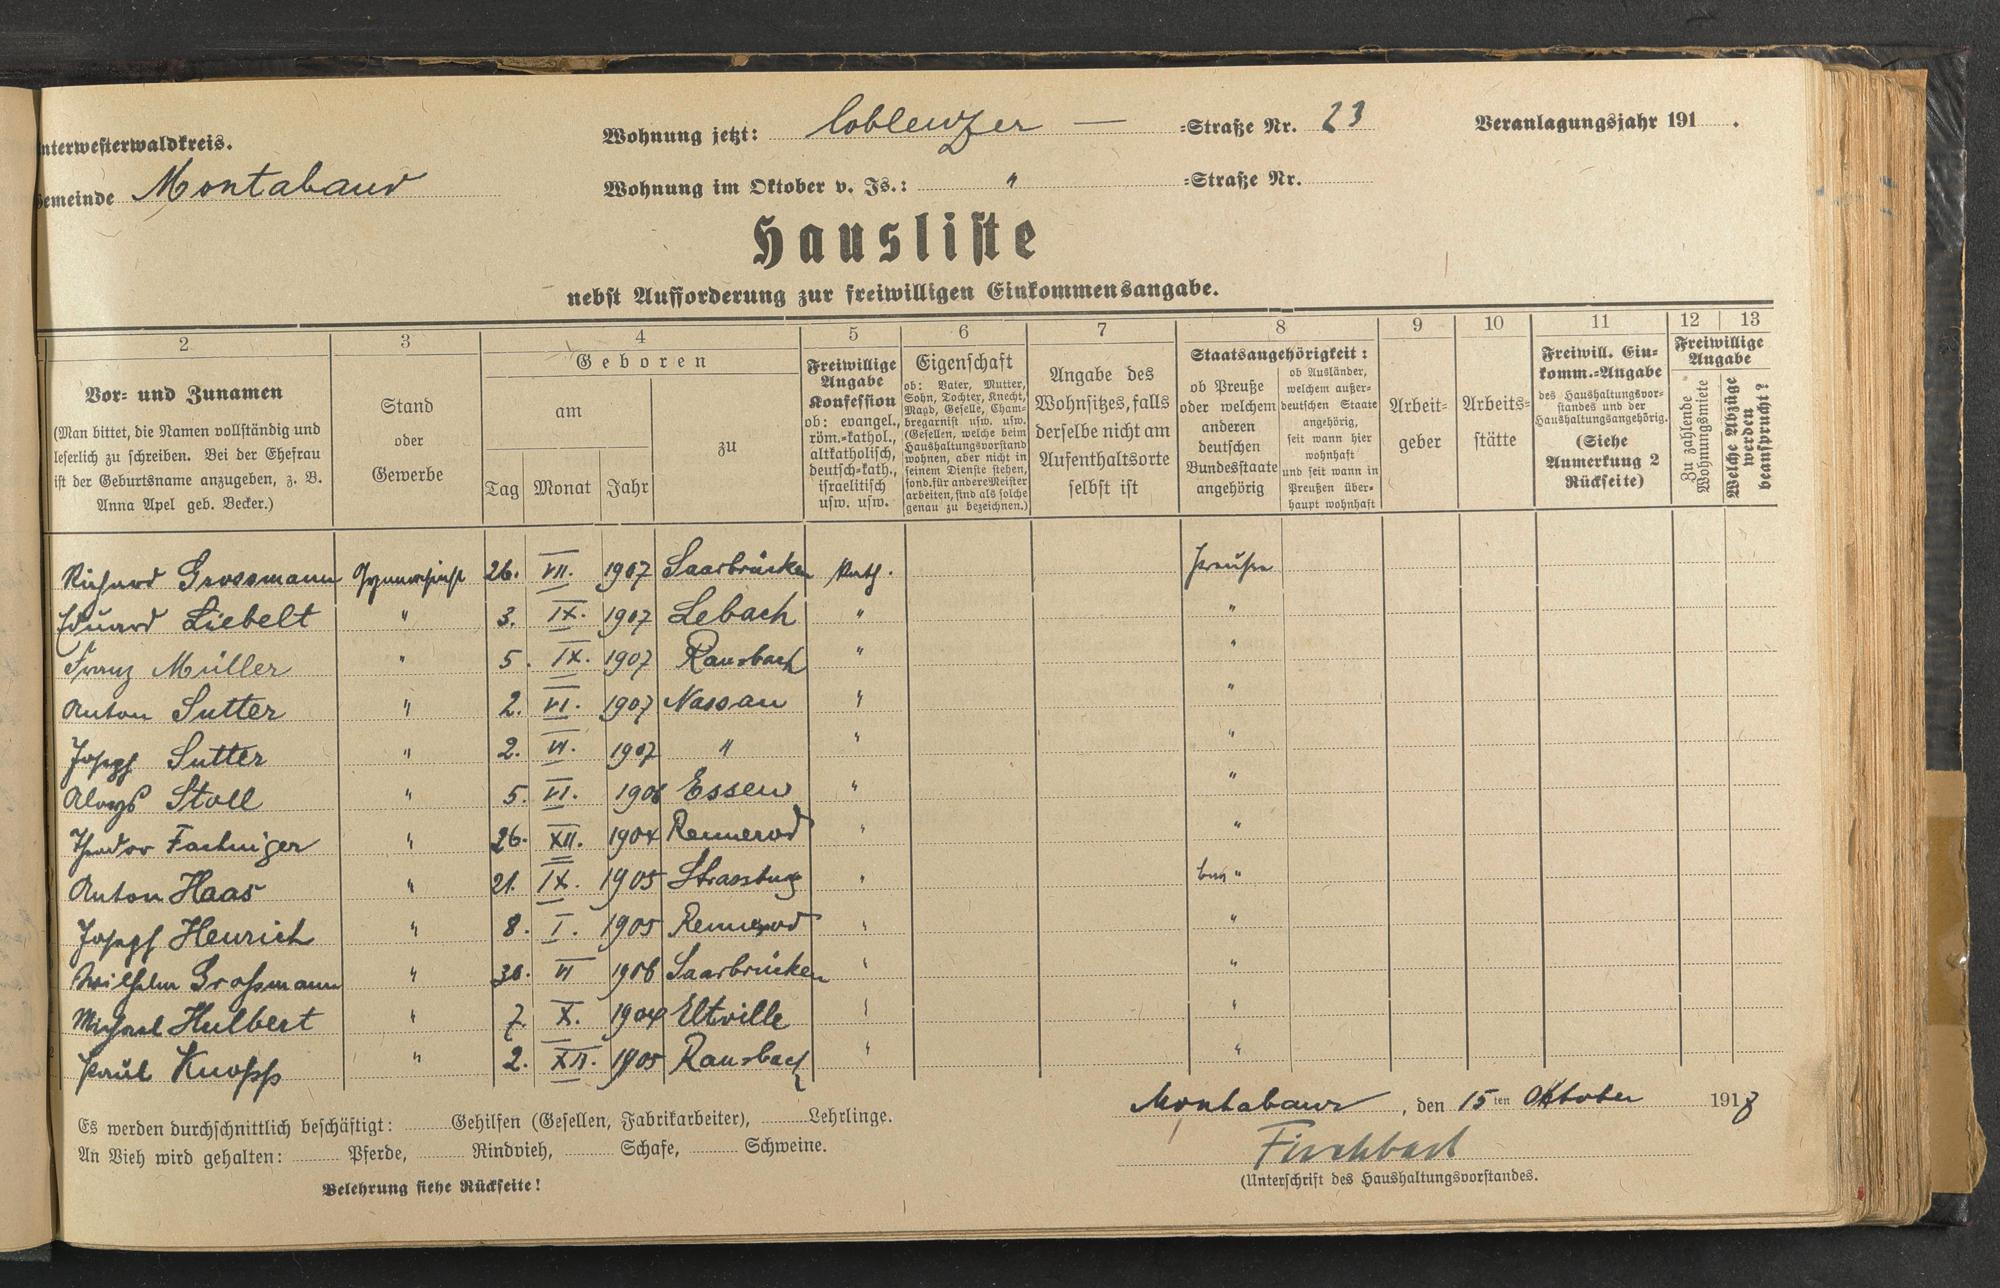 nterwesterwaldkreis.
Wohnung jetzt: Coblenzer — =Straße Nr. 23
Veranlagungsjahr 191 .
emeinde Montabaur
Wohnung im Oktober v. Js.: " =Straße Nr.
Hausliste
nebst Aufforderung zur freiwilligen Einkommensangabe.
2 3 4 5 6 7 8 9 10 11 12 13
Vor= und Zunamen
(Man bittet, die Namen vollständig und
leserlich zu schreiben. Bei der Ehefrau
ist der Geburtsname anzugeben, z. B.
Anna Apel geb. Becker.)
Stand
oder
Gewerbe
Geboren
am
Tag Monat Jahr
zu
Freiwillige
Angabe
Konfession
ob: evangel.,
röm.=kathol.,
altkatholisch,
deutsch=kath.,
israelitisch
usw. usw.
Eigenschaft
ob: Vater, Mutter,
Sohn, Tochter, Knecht,
Magd, Geselle, Cham=
bregarnist usw. usw.
(Gesellen, welche beim
Haushaltungsvorstand
wohnen, aber nicht in
seinem Dienste stehen,
sond. für andere Meister
arbeiten, sind als solche
genau zu bezeichnen.)
Angabe des
Wohnsitzes, falls
derselbe nicht am
Aufenthaltsorte
selbst ist
Staatsangehörigkeit:
ob Preuße
oder welchem
anderen
deutschen
Bundesstaate
angehörig
ob Ausländer,
welchem außer=
deutschen Staate
angehörig,
seit wann hier
wohnhaft
und seit wann in
Preußen über=
haupt wohnhaft
Arbeit=
geber
Arbeits=
stätte
Freiwill. Ein=
komm.=Angabe
des Haushaltungsvor=
standes und der
Haushaltungsangehörig.
(Siehe
Anmerkung 2
Rückseite)
Freiwillige
Angabe
Zu zahlende
Wohnungsmiete
Welche Abzüge
werden
beansprucht?
Richard Grossmann Gymnasiast 26. VII. 1907 Saarbrücken kath. Preuße
Eduard Liebelt " 3. IX. 1907 Lebach " "
Franz Müller " 5. IX. 1907 Ransbach " "
Anton Sutter " 2. VI. 1907 Nassau " "
Joseph Sutter " 2. VI. 1907 " " "
Aloys Stoll " 5. VI. 1906 Essen " "
Theodor Fachinger " 26. XII. 1904 Rennerod " "
Anton Haas " 21. IX. 1905 Strassburg " "
Joseph Henrich " 8. I. 1905 Rennerod " "
Wilhelm Großmann " 30. VI 1906 Saarbrücken " "
Michael Hulbert " 7. X. 1904 Eltville " "
Paul Knopp " 2. XII. 1905 Ransbach " "
Es werden durchschnittlich beschäftigt: Gehilfen (Gesellen, Fabrikarbeiter), Lehrlinge.
An Vieh wird gehalten: Pferde, Rindvieh, Schafe, Schweine.
Belehrung siehe Rückseite!
Montabaur, den 15ten Oktober 1918
Fischbach
(Unterschrift des Haushaltungsvorstandes.